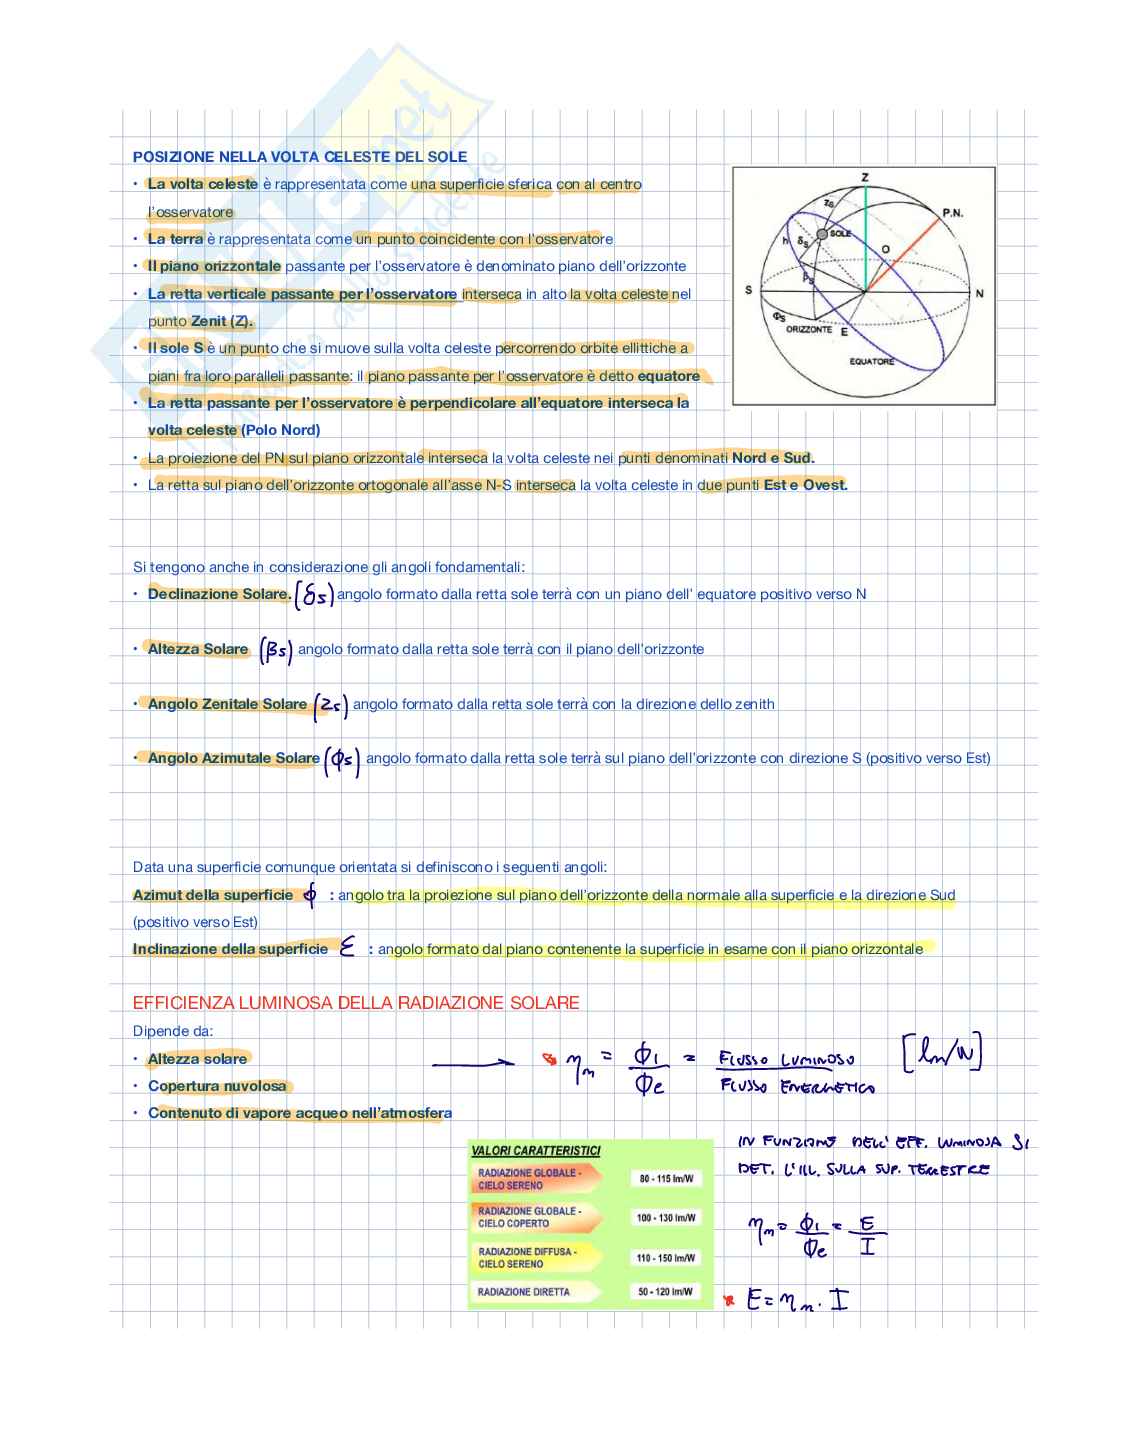 POSIZIONE NELLA VOLTA CELESTE DEL SOLE
• La volta celeste è rappresentata come una superficie sferica con al centro
l'osservatore
• La terra è rappresentata come un punto coincidente con l'osservatore
• Il piano orizzontale passante per l'osservatore è denominato piano dell'orizzonte
• La retta verticale passante per l'osservatore interseca in alto la volta celeste nel
punto Zenit (Z).
• Il sole S è un punto che si muove sulla volta celeste percorrendo orbite ellittiche a
piani fra loro paralleli passante: il piano passante per l'osservatore è detto equatore
• La retta passante per l'osservatore è perpendicolare all'equatore interseca la
volta celeste (Polo Nord)
• La proiezione del PN sul piano orizzontale interseca la volta celeste nei punti denominati Nord e Sud.
• La retta sul piano dell'orizzonte ortogonale all'asse N-S interseca la volta celeste in due punti Est e Ovest.
Z
P.N.
zs
SOLE
h
δs
O
βs
S
N
Φs
ORIZZONTE
E
EQUATORE
Si tengono anche in considerazione gli angoli fondamentali:
• Declinazione Solare. (δs) angolo formato dalla retta sole terrà con un piano dell' equatore positivo verso N
• Altezza Solare (βs) angolo formato dalla retta sole terrà con il piano dell'orizzonte
• Angolo Zenitale Solare (Zs) angolo formato dalla retta sole terrà con la direzione dello zenith
• Angolo Azimutale Solare (ϕs) angolo formato dalla retta sole terrà sul piano dell'orizzonte con direzione S (positivo verso Est)
Data una superficie comunque orientata si definiscono i seguenti angoli:
Azimut della superficie ϕ : angolo tra la proiezione sul piano dell'orizzonte della normale alla superficie e la direzione Sud
(positivo verso Est)
Inclinazione della superficie ε : angolo formato dal piano contenente la superficie in esame con il piano orizzontale
EFFICIENZA LUMINOSA DELLA RADIAZIONE SOLARE
Dipende da:
• Altezza solare
• Copertura nuvolosa
• Contenuto di vapore acqueo nell'atmosfera
ηm = ϕl / ϕe = FLUSSO LUMINOSO / FLUSSO ENERGETICO [lm/W]
VALORI CARATTERISTICI
RADIAZIONE GLOBALE -
CIELO SERENO 80 - 115 lm/W
RADIAZIONE GLOBALE -
CIELO COPERTO 100 - 130 lm/W
RADIAZIONE DIFFUSA -
CIELO SERENO 110 - 150 lm/W
RADIAZIONE DIRETTA 50 - 120 lm/W
IN FUNZIONE DELL' EFF. LUMINOSA SI
DET. L'ILL. SULLA SUP. TERRESTRE
ηm = ϕl / ϕe = E / I
* E = ηm · I